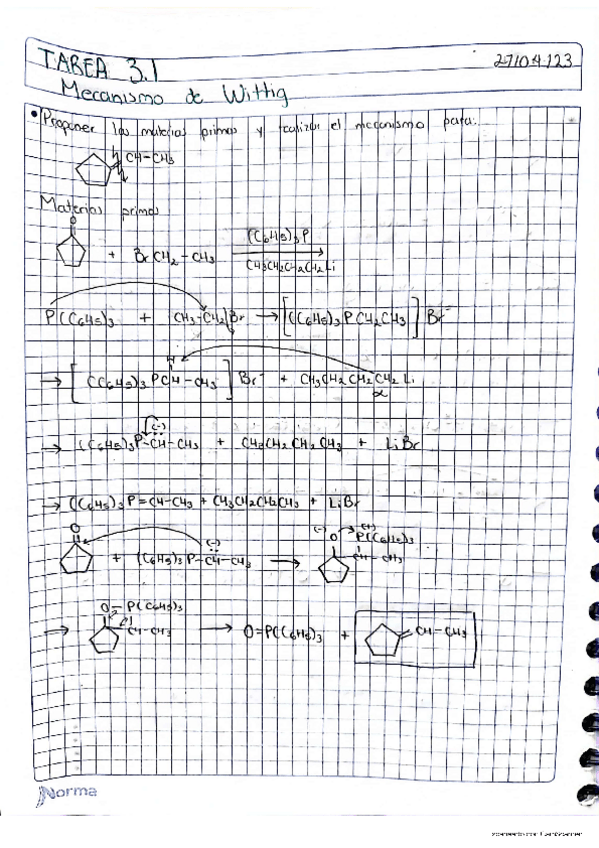 TAREA 3.1
27/04/23
Mecanismo de Wittig
• Proponer las materias primas y realizar el mecanismo para:
CH-CH3
Materias primas
O
+ BrCH2-CH3
(C6H5)3P
CH3CH2CH2CH2Li
P(C6H5)3 + CH3-CH2Br → [(C6H5)3PCH2CH3] Br-
H
→ [(C6H5)3PCH-CH3] Br- + CH3CH2CH2CH2Li
α
(-)
→ (C6H5)3P-CH-CH3 + CH3CH2CH2CH3 + LiBr
→ (C6H5)3P=CH-CH3 + CH3CH2CH2CH3 + LiBr
O
+ (C6H5)3P-CH-CH3 →
(-)
(-) (+)
O P(C6H5)3
CH-CH3
O-P(C6H5)3
→ CH-CH3 → O=P(C6H5)3 + CH-CH3
Norma